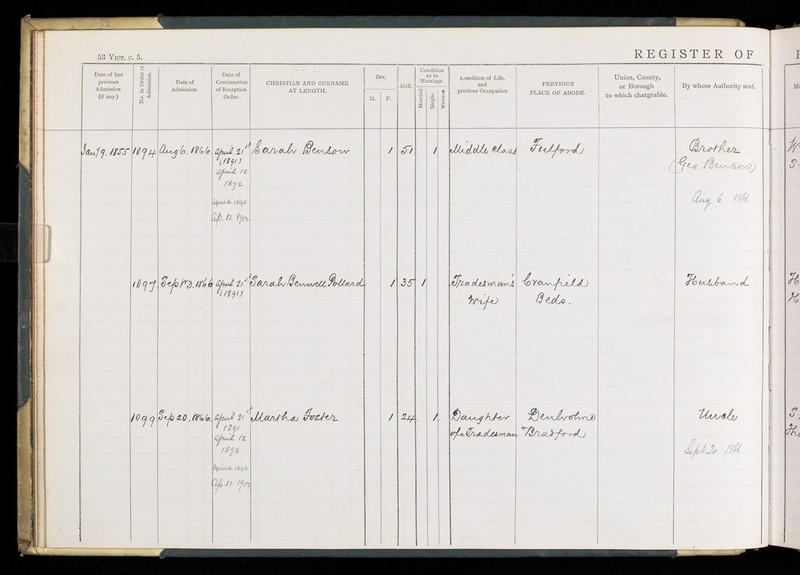 53 VICT. c. 5.
REGISTER OF
Date of last previous Admission (if any.)
No. in Order of Admission.
Date of Admission.
Date of Continuation of Reception Order.
CHRISTIAN AND SURNAME AT LENGTH.
Sex.
M. F.
AGE.
Condition as to Marriage.
Married. Single. Widowed.
Condition of Life, and previous Occupation
PREVIOUS PLACE OF ABODE.
Union, County, or Borough to which chargeable.
By whose Authority sent.
Jany 9. 1855 1094 Aug 6. 1866 April 21st Sarah Benson 1 51 1 Middle Class Fulford Brother
(1891) (Geo Benson)
April 12
1892 Aug 6 1866
Ap. 12 1902
1097 Sept 13. 1866 April 21st Sarah Benwell Pollard 1 35 1 Tradesman's Cranfield Husband
(1891) Wife Beds.
1099 Sep 20. 1866 April 21st Martha Foster 1 24 1 Daughter Denholme Uncle
1891 of a Tradesman Bradford
April 12
1892 Sept 20 1866
Ap. 12 1902